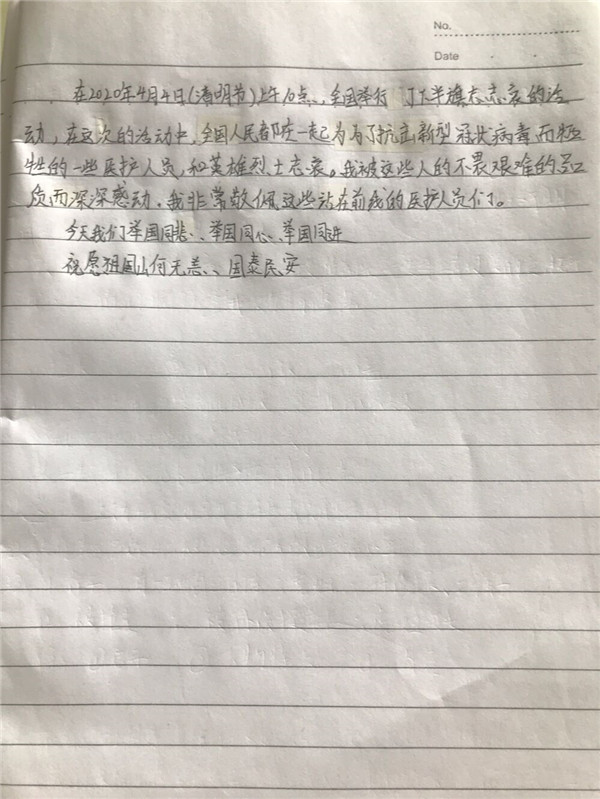 No.
Date
在2020年4月4日(清明节)上午10点、全国举行了下半旗志志哀的活
动，在这次的活动中，全国人民都在一起为为了抗击新型冠状病毒而牺
牲的一些医护人员，和英雄烈士志哀。我被这些人的不畏艰难的品
质而深深感动，我非常敬佩这些站在前线的医护人员们。
今天我们举国同悲、举国同心、举国同进
祝愿祖国山何无恙、国泰民安